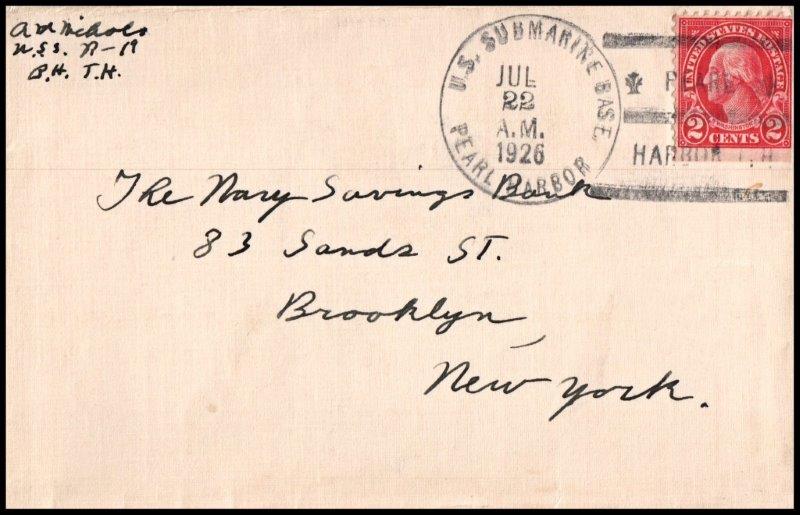 A M Nichols
U.S.S. R-19
P.H. T.H.
U.S. SUBMARINE BASE,
JUL
22
A.M.
1926
PEARL HARBOR
PEARL
HARBOR T.H.
UNITED STATES POSTAGE
WASHINGTON
2 CENTS 2
The Navy Savings Bank
83 Sands St.
Brooklyn,
New York.